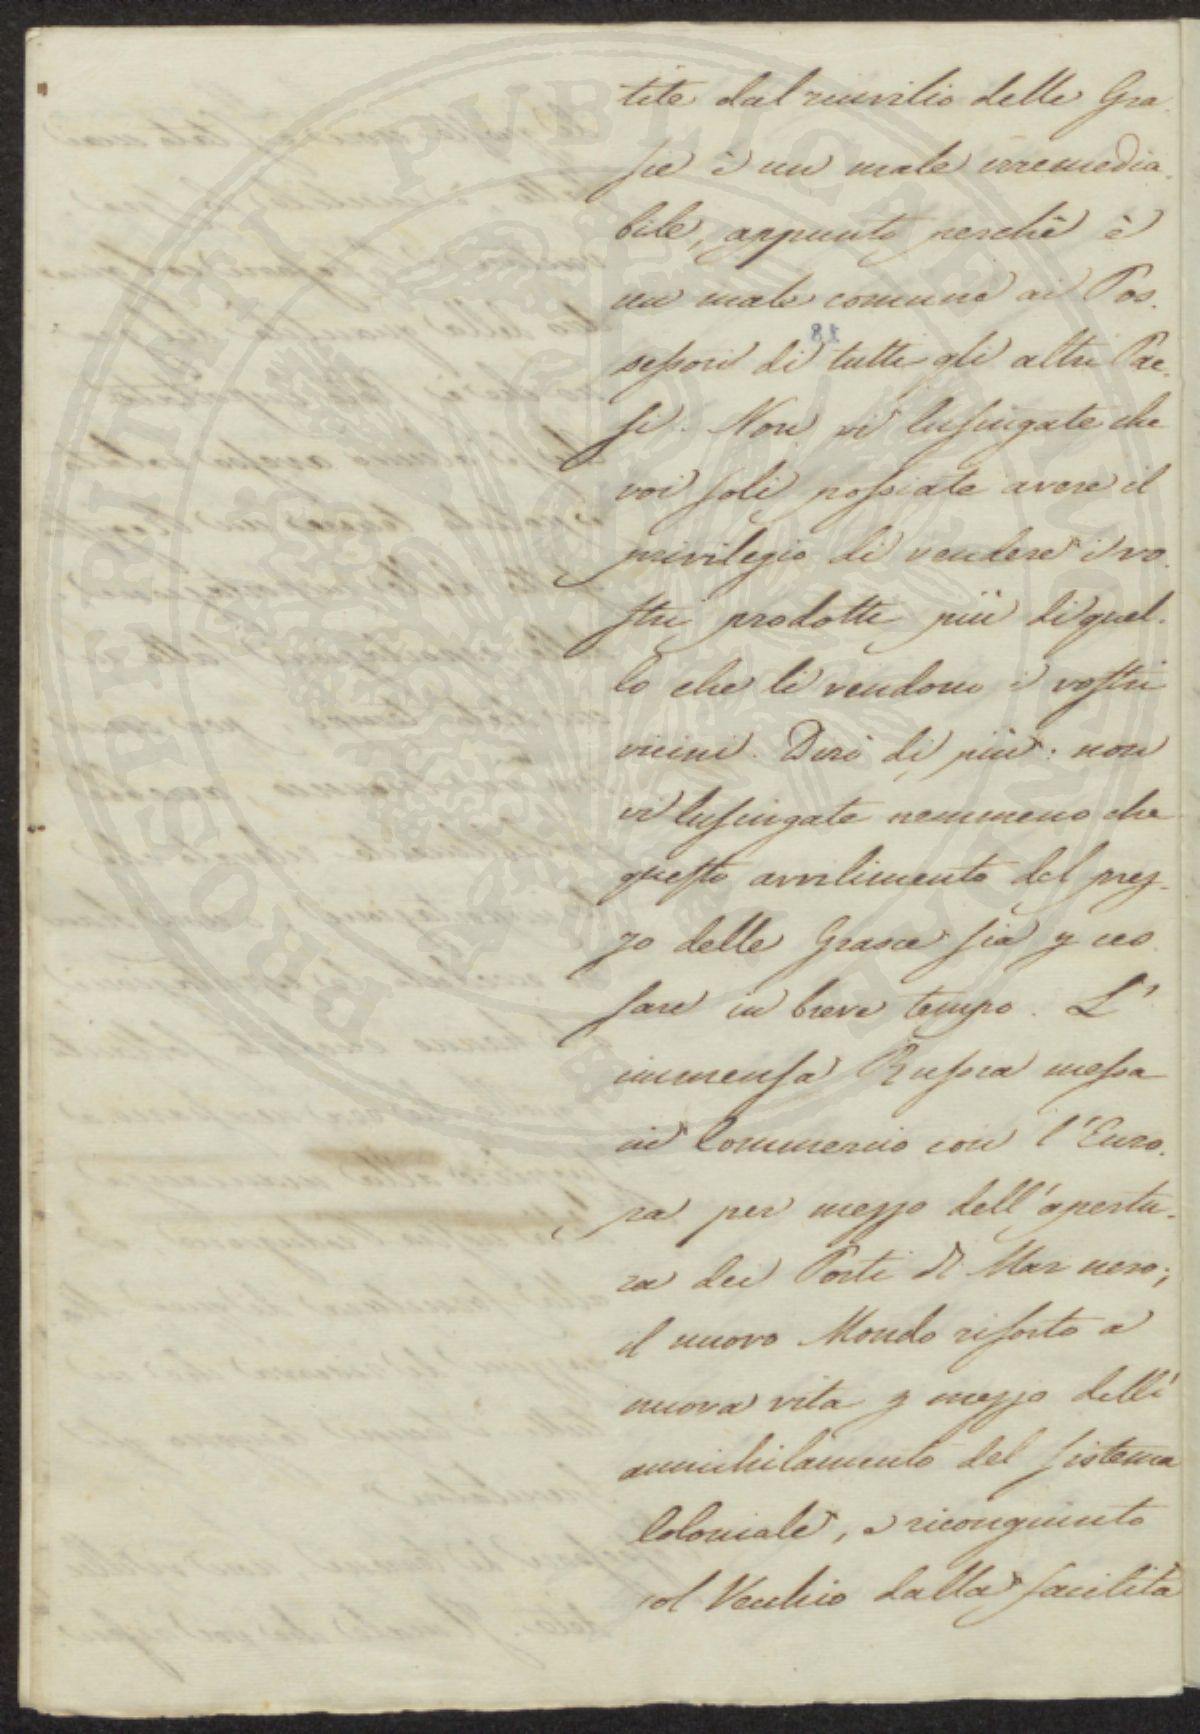 tite dal rinvilio delle Gra-
sce è un male irremedia-
bile, appunto perchè è
un male comune ai Pos-
sessori di tutti gli altri Pae-
si. Non vi lusingate che
voi soli possiate avere il
privilegio di vendere i vo-
stri prodotti più di quel-
lo che li vendono i vostri
vicini. Dirò di più: non
vi lusingate nemmeno che
questo avvilimento del prez-
zo delle Grasce sia p ces-
sare in breve tempo. L'
immensa Russia messa
in Commercio con l'Euro-
pa per mezzo dell'apertu-
ra dei Porti di Mar nero;
il nuovo Mondo risorto a
nuova vita p mezzo dell'
annichilamento del sistema
Coloniale, e ricongiunto
col Vecchio dalla facilità
POSTERITATI PVBLICAE